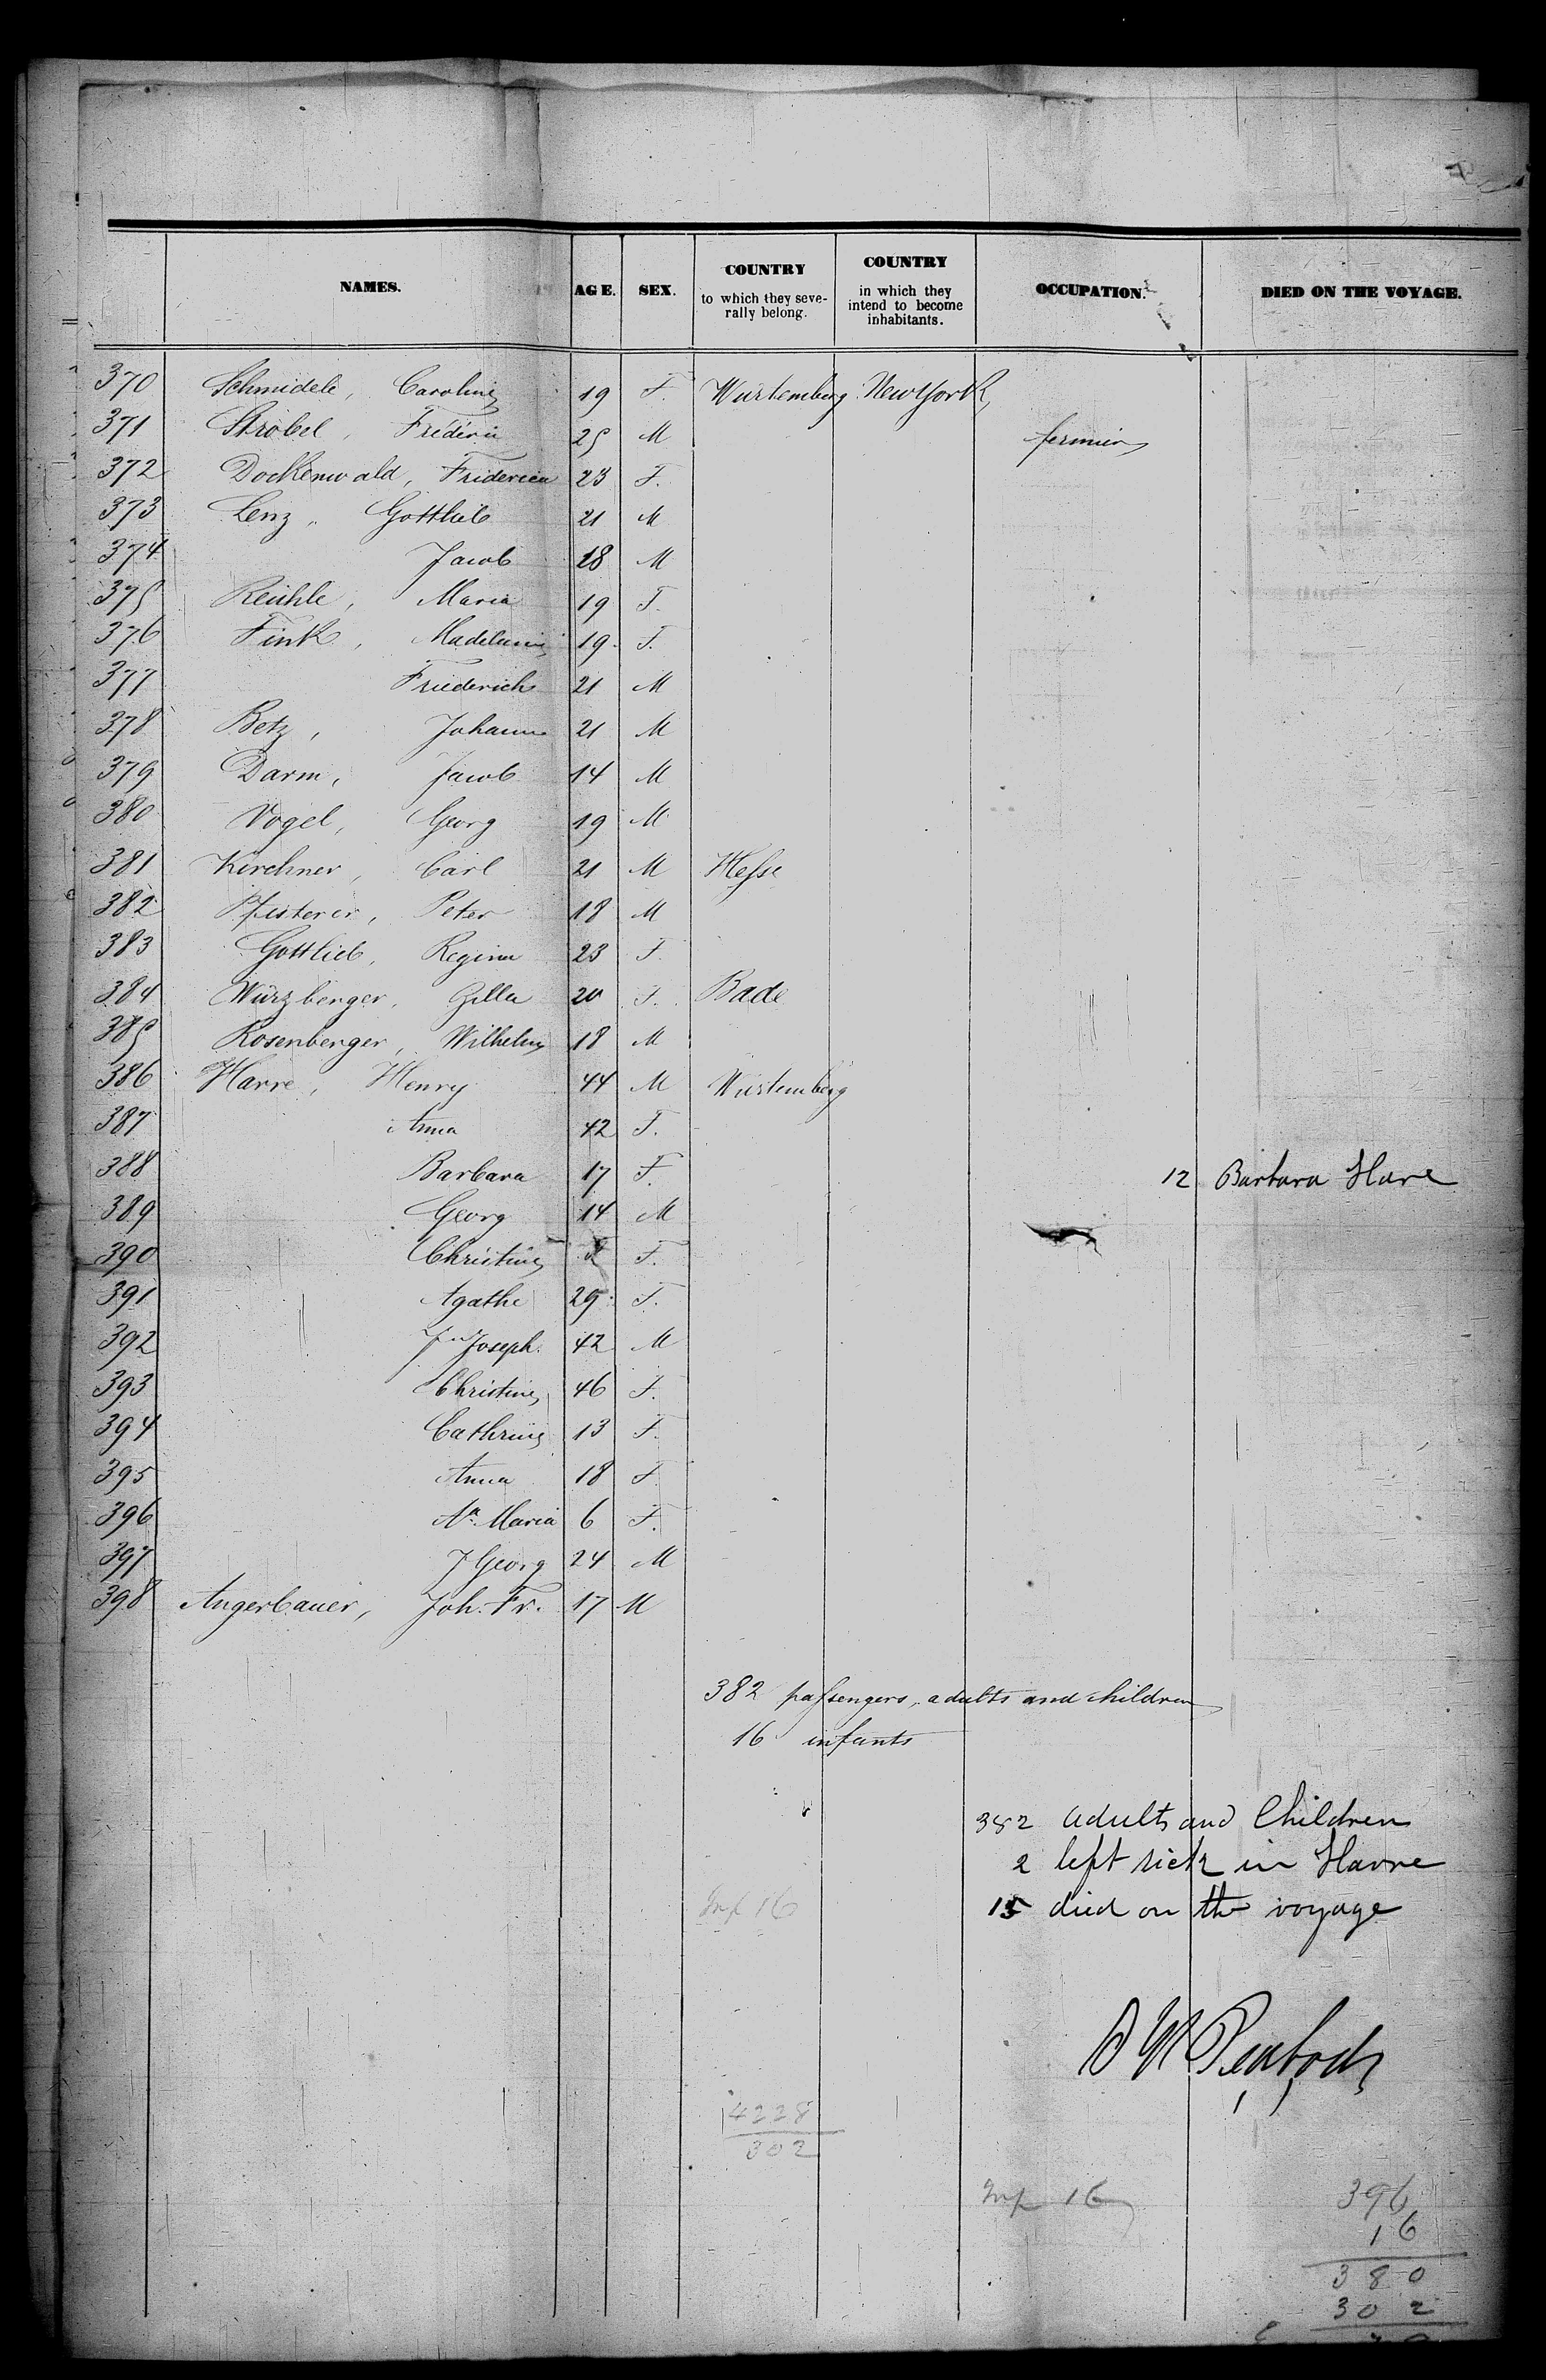 NAMES. AGE. SEX. COUNTRY to which they severally belong. COUNTRY in which they intend to become inhabitants. OCCUPATION. DIED ON THE VOYAGE.
370 Schmidele, Caroline 19 F. Wurtemberg New York
371 Strobel, Frederic 25 M fermier
372 Dockenwald, Fridericia 23 F.
373 Lenz, Gottlieb 21 M
374 Jacob 18 M
375 Reichle, Maria 19 F.
376 Fink, 19 F.
377 Friederich 21 M
378 Betz, Johann 21 M
379 Darm, Jacob 14 M
380 Vogel, Georg 19 M
381 Kirchner, Carl 21 M Hesse
382 Pfisterer, Peter 18 M
383 Gottlieb, Regina 23 F.
384 Würzberger, Zilla 20 F. Bade
385 Rosenberger, Wilhelm 18 M
386 Harre, Henry 44 M Wurtemberg
387 Anna 42 F.
388 Barbara 17 F. 12 Barbara Hare
389 Georg 14 M
390 Christine F.
391 Agathe 29 F.
392 Jn Joseph. 42 M
393 Christine 46 F.
394 Cathrine 13 F.
395 Anna 18 F
396 Aa. Maria 6 F.
397 J Georg 24 M
398 Angerbauer, Joh. Fr. 17 M
382 passengers, adults and children
16 infants
382 adults and Children
2 left sick in Havre
Inf 16
15 died on the voyage
Peabody
4228
302
Inf 16
396
16
380
302